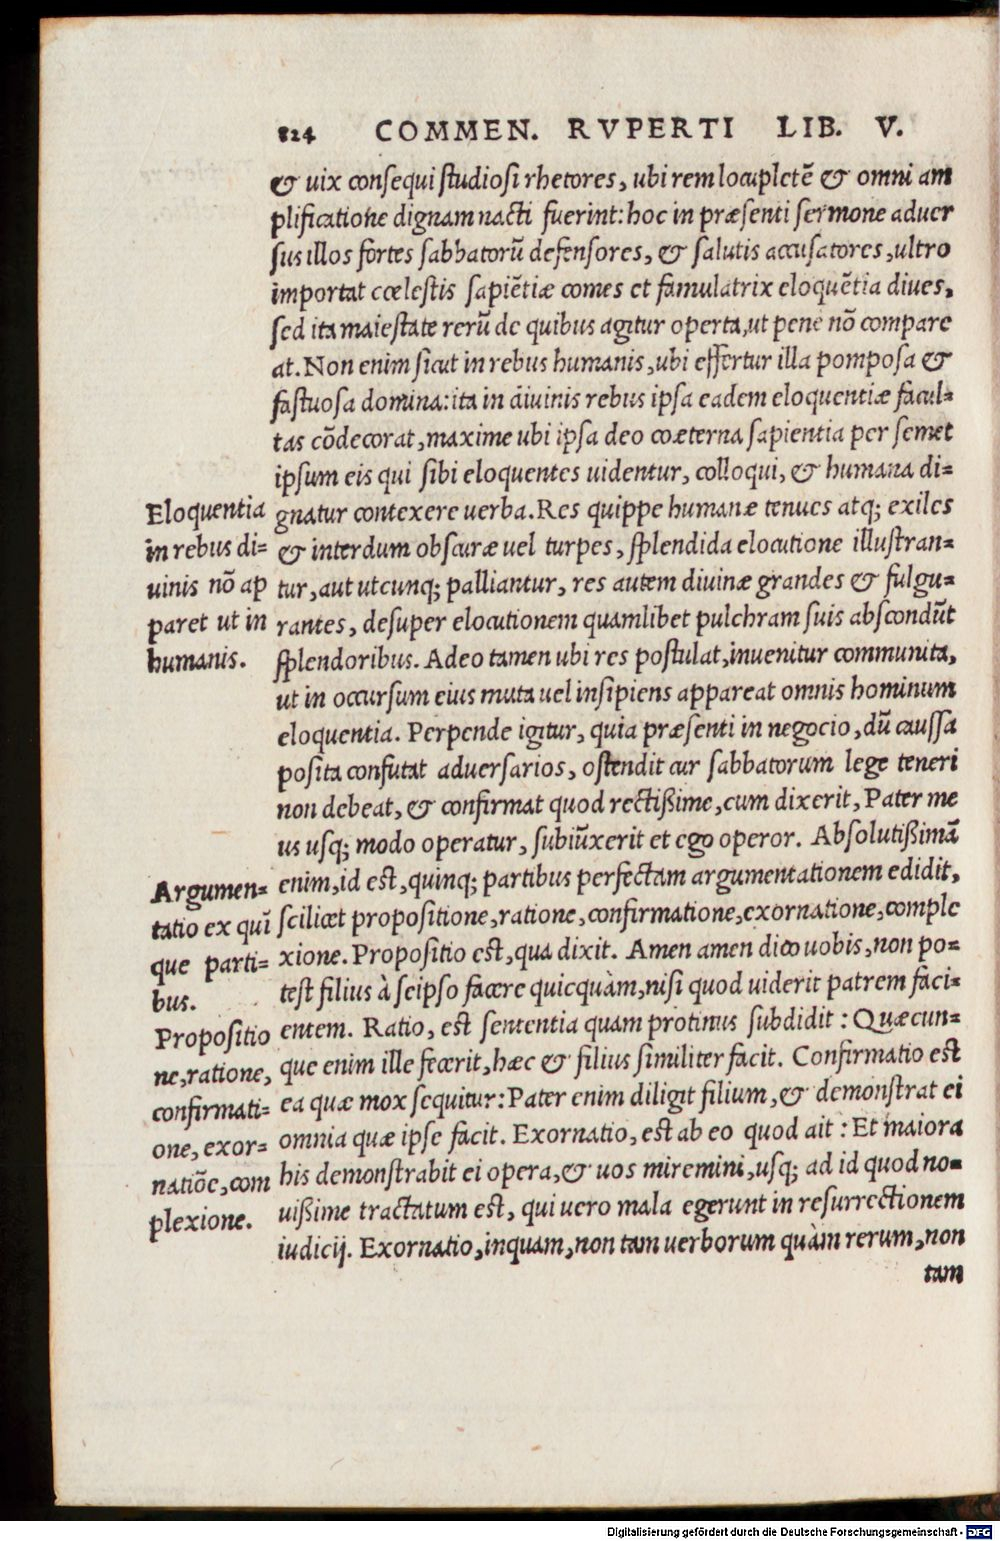 824 COMMEN. RVPERTI LIB. V.
& uix consequi studiosi rhetores, ubi rem locupletē & omni am
plificatione dignam nacti fuerint: hoc in præsenti sermone aduer
sus illos fortes sabbatorū defensores, & salutis accusatores, ultro
importat cœlestis sapiētiæ comes et famulatrix eloquētia diues,
sed ita maiestate rerū de quibus agitur operta, ut pene nō compare
at. Non enim sicut in rebus humanis, ubi effertur illa pomposa &
fastuosa domina: ita in diuinis rebus ipsa eadem eloquentiæ facul=
tas cōdecorat, maxime ubi ipsa deo coæterna sapientia per semet
ipsum eis qui sibi eloquentes uidentur, colloqui, & humana di=
gnatur contexere uerba. Res quippe humanæ tenues atq; exiles
& interdum obscuræ uel turpes, splendida elocutione illustran=
tur, aut utcunq; palliantur, res autem diuinæ grandes & fulgu=
rantes, desuper elocutionem quamlibet pulchram suis abscondūt
splendoribus. Adeo tamen ubi res postulat, inuenitur communita,
ut in occursum eius muta uel insipiens appareat omnis hominum
eloquentia. Perpende igitur, quia præsenti in negocio, dū caussa
posita confutat aduersarios, ostendit cur sabbatorum lege teneri
non debeat, & confirmat quod rectißime, cum dixerit, Pater me
us usq; modo operatur, subiūxerit et ego operor. Absolutißimā
enim, id est, quinq; partibus perfectam argumentationem edidit,
scilicet propositione, ratione, confirmatione, exornatione, comple
xione. Propositio est, qua dixit. Amen amen dico uobis, non po=
test filius à seipso facere quicquàm, nisi quod uiderit patrem faci=
entem. Ratio, est sententia quam protinus subdidit: Quæcun=
que enim ille fecerit, hæc & filius similiter facit. Confirmatio est
ea quæ mox sequitur: Pater enim diligit filium, & demonstrat ei
omnia quæ ipse facit. Exornatio, est ab eo quod ait: Et maiora
his demonstrabit ei opera, & uos miremini, usq; ad id quod no=
uißime tractatum est, qui uero mala egerunt in resurrectionem
iudicij. Exornatio, inquam, non tam uerborum quàm rerum, non
tam
Eloquentia
in rebus di=
uinis nō ap
paret ut in
humanis.
Argumen=
tatio ex quī
que parti=
bus.
Propositio
ne, ratione,
confirmati=
one, exor=
natiōe, com
plexione.
Digitalisierung gefördert durch die Deutsche Forschungsgemeinschaft - DFG